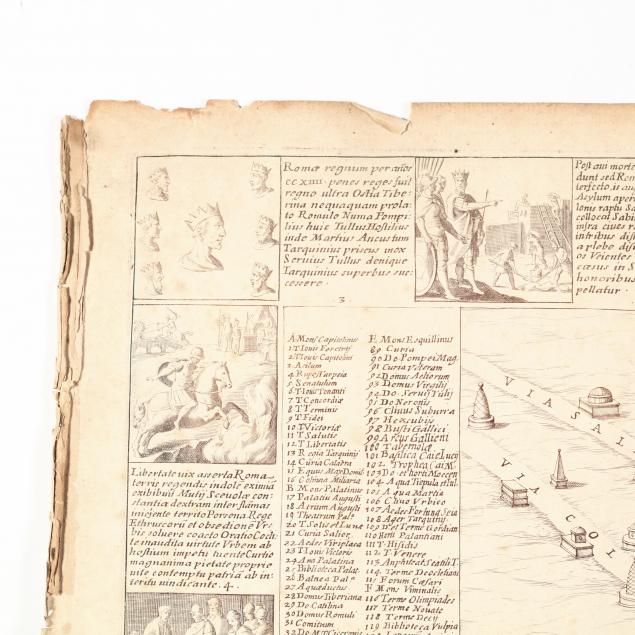 Romæ regnum per años
CCXIIII. penes reges fuit
regno ultra Ostia Tibe:
rina nequaquam prola:
to Romulo Numa Pompi:
lius huic Tullus Hostilius
inde Martius Ancus tum
Tarquinius priscus mox
Servius Tullus denique
Tarquinius superbus suc:
cessere.
3
Post aui morte
dunt sed Rom
terfecto, is au
Asylum aper
lonis raptu Sa
collocat Sabin
infra ciues r
intribus dis
a plebo dis
os Veientes
cæsus in S
honoribus
pellatur.
Libertate uix asserta Roma:
terris regendis indole eximia
exibibuit Mutij Sceuolæ con:
stantia dextram inter flamas
iniciente territo Porsena Rege
Ethruscorũ et obsedione Vr:
bis soluere coacto Oratio Cocli:
te inaudita uirtute Vrbem ab
hostium impetu tuente Curtio
magnanima pietate proprie
uite contemptu patria ab in:
teritu uindicante. 4.
A Mons Capitolinus
1 T Iouis Feretrij
2 T Iouis Capitolini
3 Asilum
4 Rupes Tarpeia
5 Senatulum
6 T Ioui Tonanti
7 T Concordiæ
8 T Terminus
9 T Fidei
10 T Victoriæ
11 T Salutis
12 T Libertatis
13 Regia Tarquinij
14 Curia Calabra
15 Equus Max Domit
16 Columna Miliaria
B Mons Palatinus
17 Palatiu Augusti
18 Atrium Augusti
19 Theatrum Pal.
20 T Solis et Lunæ
21 Curia Salior
22 Aedes Viriplaca
23 T Iouis Victoris
24 Ara Palatina
25 Biblioteca Palat.
26 Balnea Pal.
27 Aquæductus
28 Domus Tiberiana
29 Do Catilina
30 Domus Romuli
31 Comitum
32 Do M T Ciceronis
E Mons Esquillinus
89 Curia
90 Do Pompei Mag.
91 Curia Veteram
92 Domus Aeliorum
93 Domus Virgilij
94 Do Seruij Tulij
95 Do Neronis
96 Cliuus Suburra
97 Hexubijs
98 Busti Gallici
99 Arcus Gallieni
100 Tabernolæ
101 Basilica Caie Lucij
102 Trophea Cai M
103 Do et horti Mœcen
104 Aqua Tiepula et Iul
105 Aqua Martia
106 Cliuo Vrbico
107 Aedes Fortunæ Seia
108 Ager Tarquinij
109 Terme Gordian
110 Horti Palantiani
111 T Isidis
112 T Venere
113 Amphiteat Statili T
114 Terme Deocletiani
115 Forum Cæsari
F Mons Viminalis
116 Terme Olimpiades
117 Terme Nouate
118 Terme Decij
119 Biblioteca Vulpia
VIA SAL
VIA COL